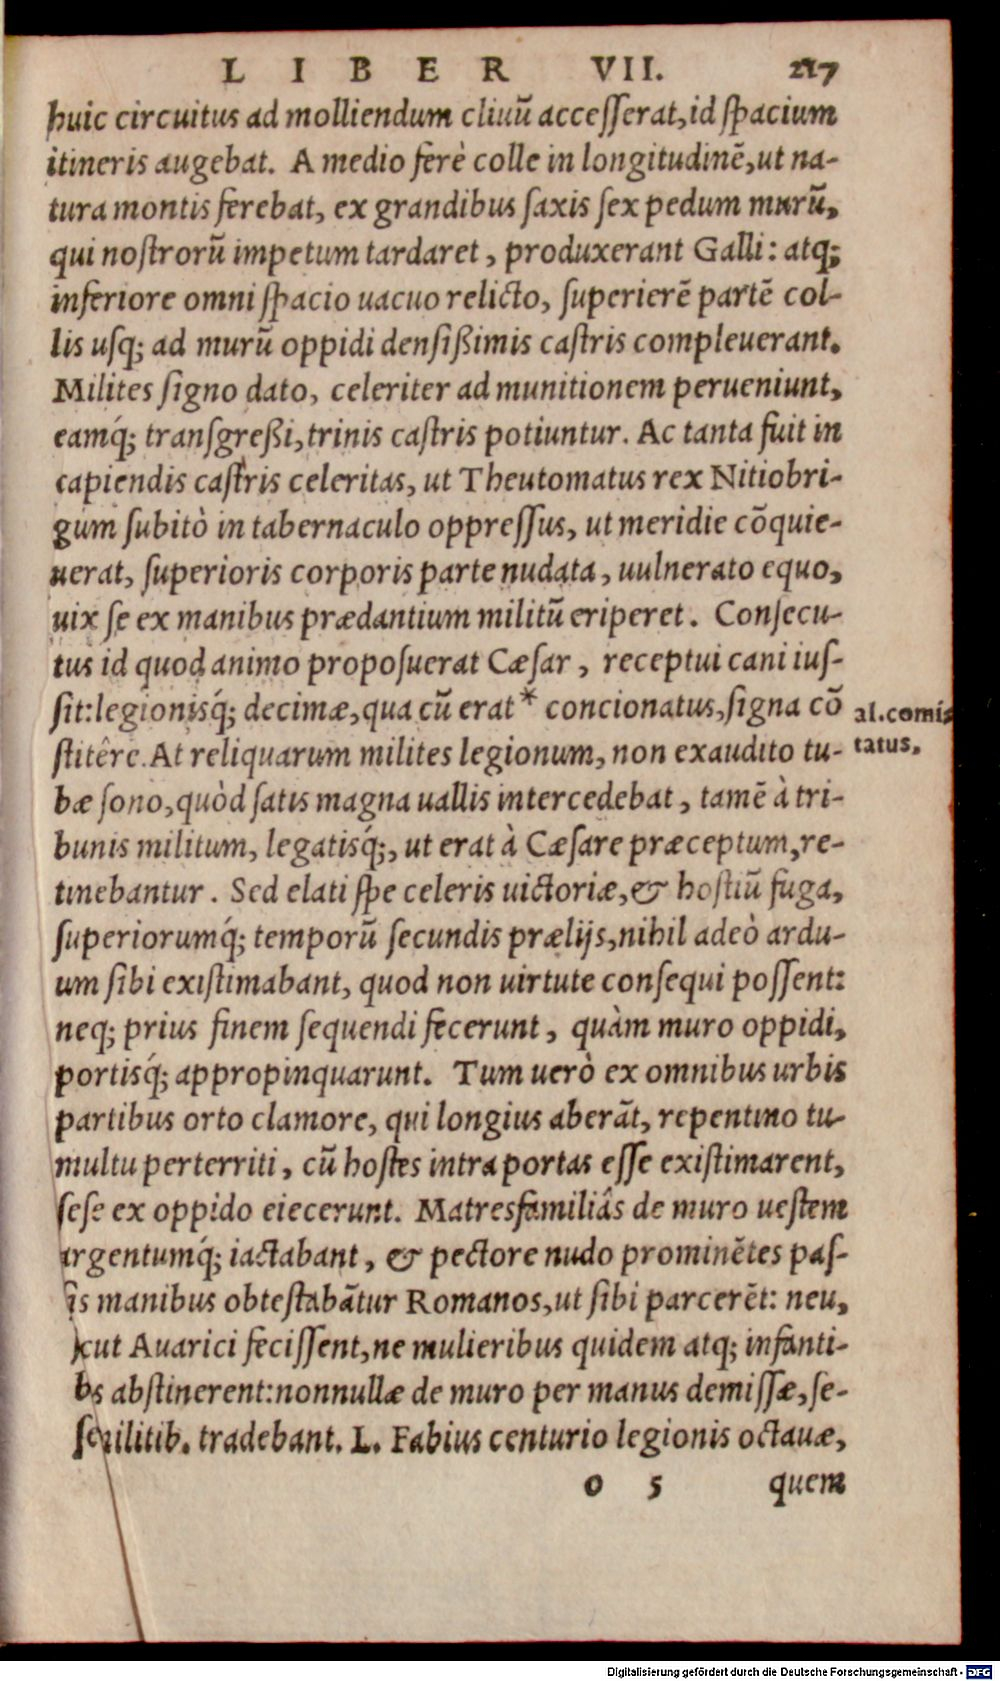 LIBER VII. 217
huic circuitus ad molliendum cliuũ accesserat, id spacium
itineris augebat. A medio ferè colle in longitudinẽ, ut na-
tura montis ferebat, ex grandibus saxis sex pedum murũ,
qui nostrorũ impetum tardaret, produxerant Galli: atq;
inferiore omni spacio uacuo relicto, superierẽ partẽ col-
lis usq; ad murũ oppidi densißimis castris compleuerant.
Milites signo dato, celeriter ad munitionem perueniunt,
eamq́; transgreßi, trinis castris potiuntur. Ac tanta fuit in
capiendis castris celeritas, ut Theutomatus rex Nitiobri-
gum subitò in tabernaculo oppressus, ut meridie cõquie-
uerat, superioris corporis parte nudata, uulnerato equo,
uix se ex manibus prædantium militũ eriperet. Consecu-
tus id quod animo proposuerat Cæsar, receptui cani ius-
sit: legionisq́; decimæ, qua cũ erat * concionatus, signa cõ
al. comi-
tatus.
stitêre. At reliquarum milites legionum, non exaudito tu-
bæ sono, quòd satis magna uallis intercedebat, tamẽ à tri-
bunis militum, legatisq́;, ut erat à Cæsare præceptum, re-
tinebantur. Sed elati spe celeris uictoriæ, & hostiũ fuga,
superiorumq́; temporũ secundis prælijs, nihil adeò ardu-
um sibi existimabant, quod non uirtute consequi possent:
neq; prius finem sequendi fecerunt, quàm muro oppidi,
portisq́; appropinquarunt. Tum uerò ex omnibus urbis
partibus orto clamore, qui longius aberãt, repentino tu-
multu perterriti, cũ hostes intra portas esse existimarent,
sese ex oppido eiecerunt. Matresfamiliâs de muro uestem
argentumq́; iactabant, & pectore nudo prominẽtes pas-
is manibus obtestabãtur Romanos, ut sibi parcerẽt: neu,
icut Auarici fecissent, ne mulieribus quidem atq; infanti-
bs abstinerent: nonnullæ de muro per manus demissæ, se-
se ilitib. tradebant. L. Fabius centurio legionis octauæ,
o 5 quem
Digitalisierung gefördert durch die Deutsche Forschungsgemeinschaft - DFG